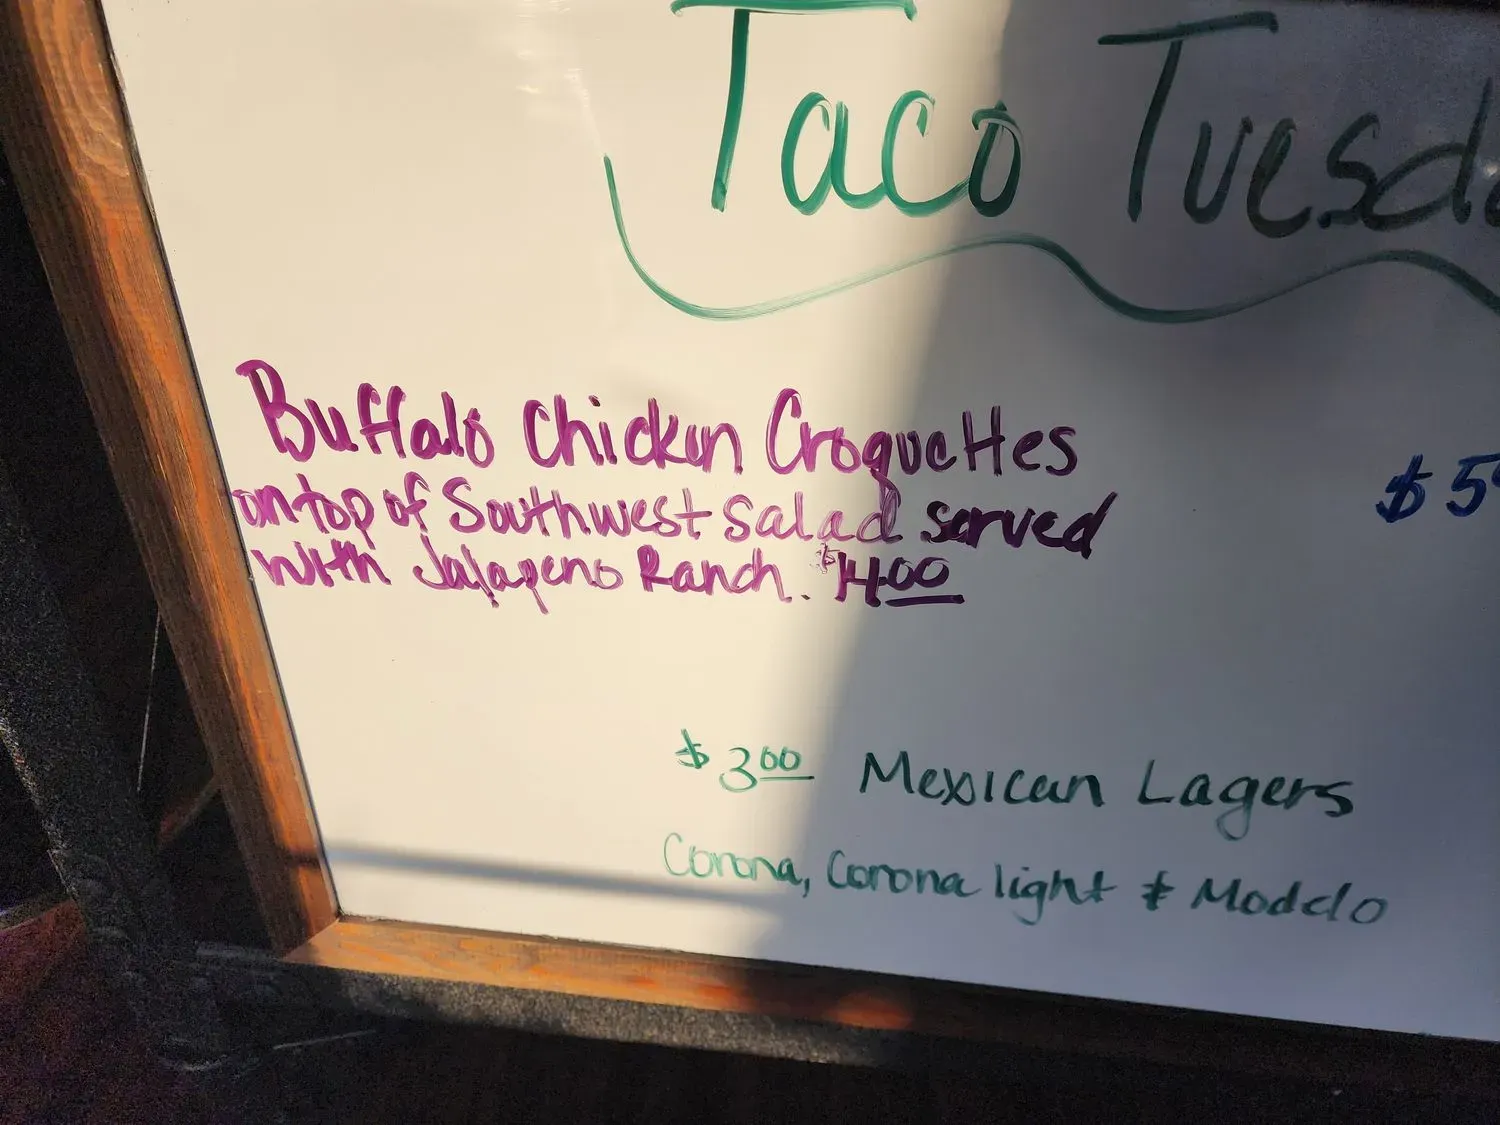 Taco Tuesda
Buffalo Chicken Croquettes
on top of Southwest Salad served
with Jalapeno Ranch. $14.00
$5
$3.00 Mexican Lagers
Corona, Corona light & Modelo